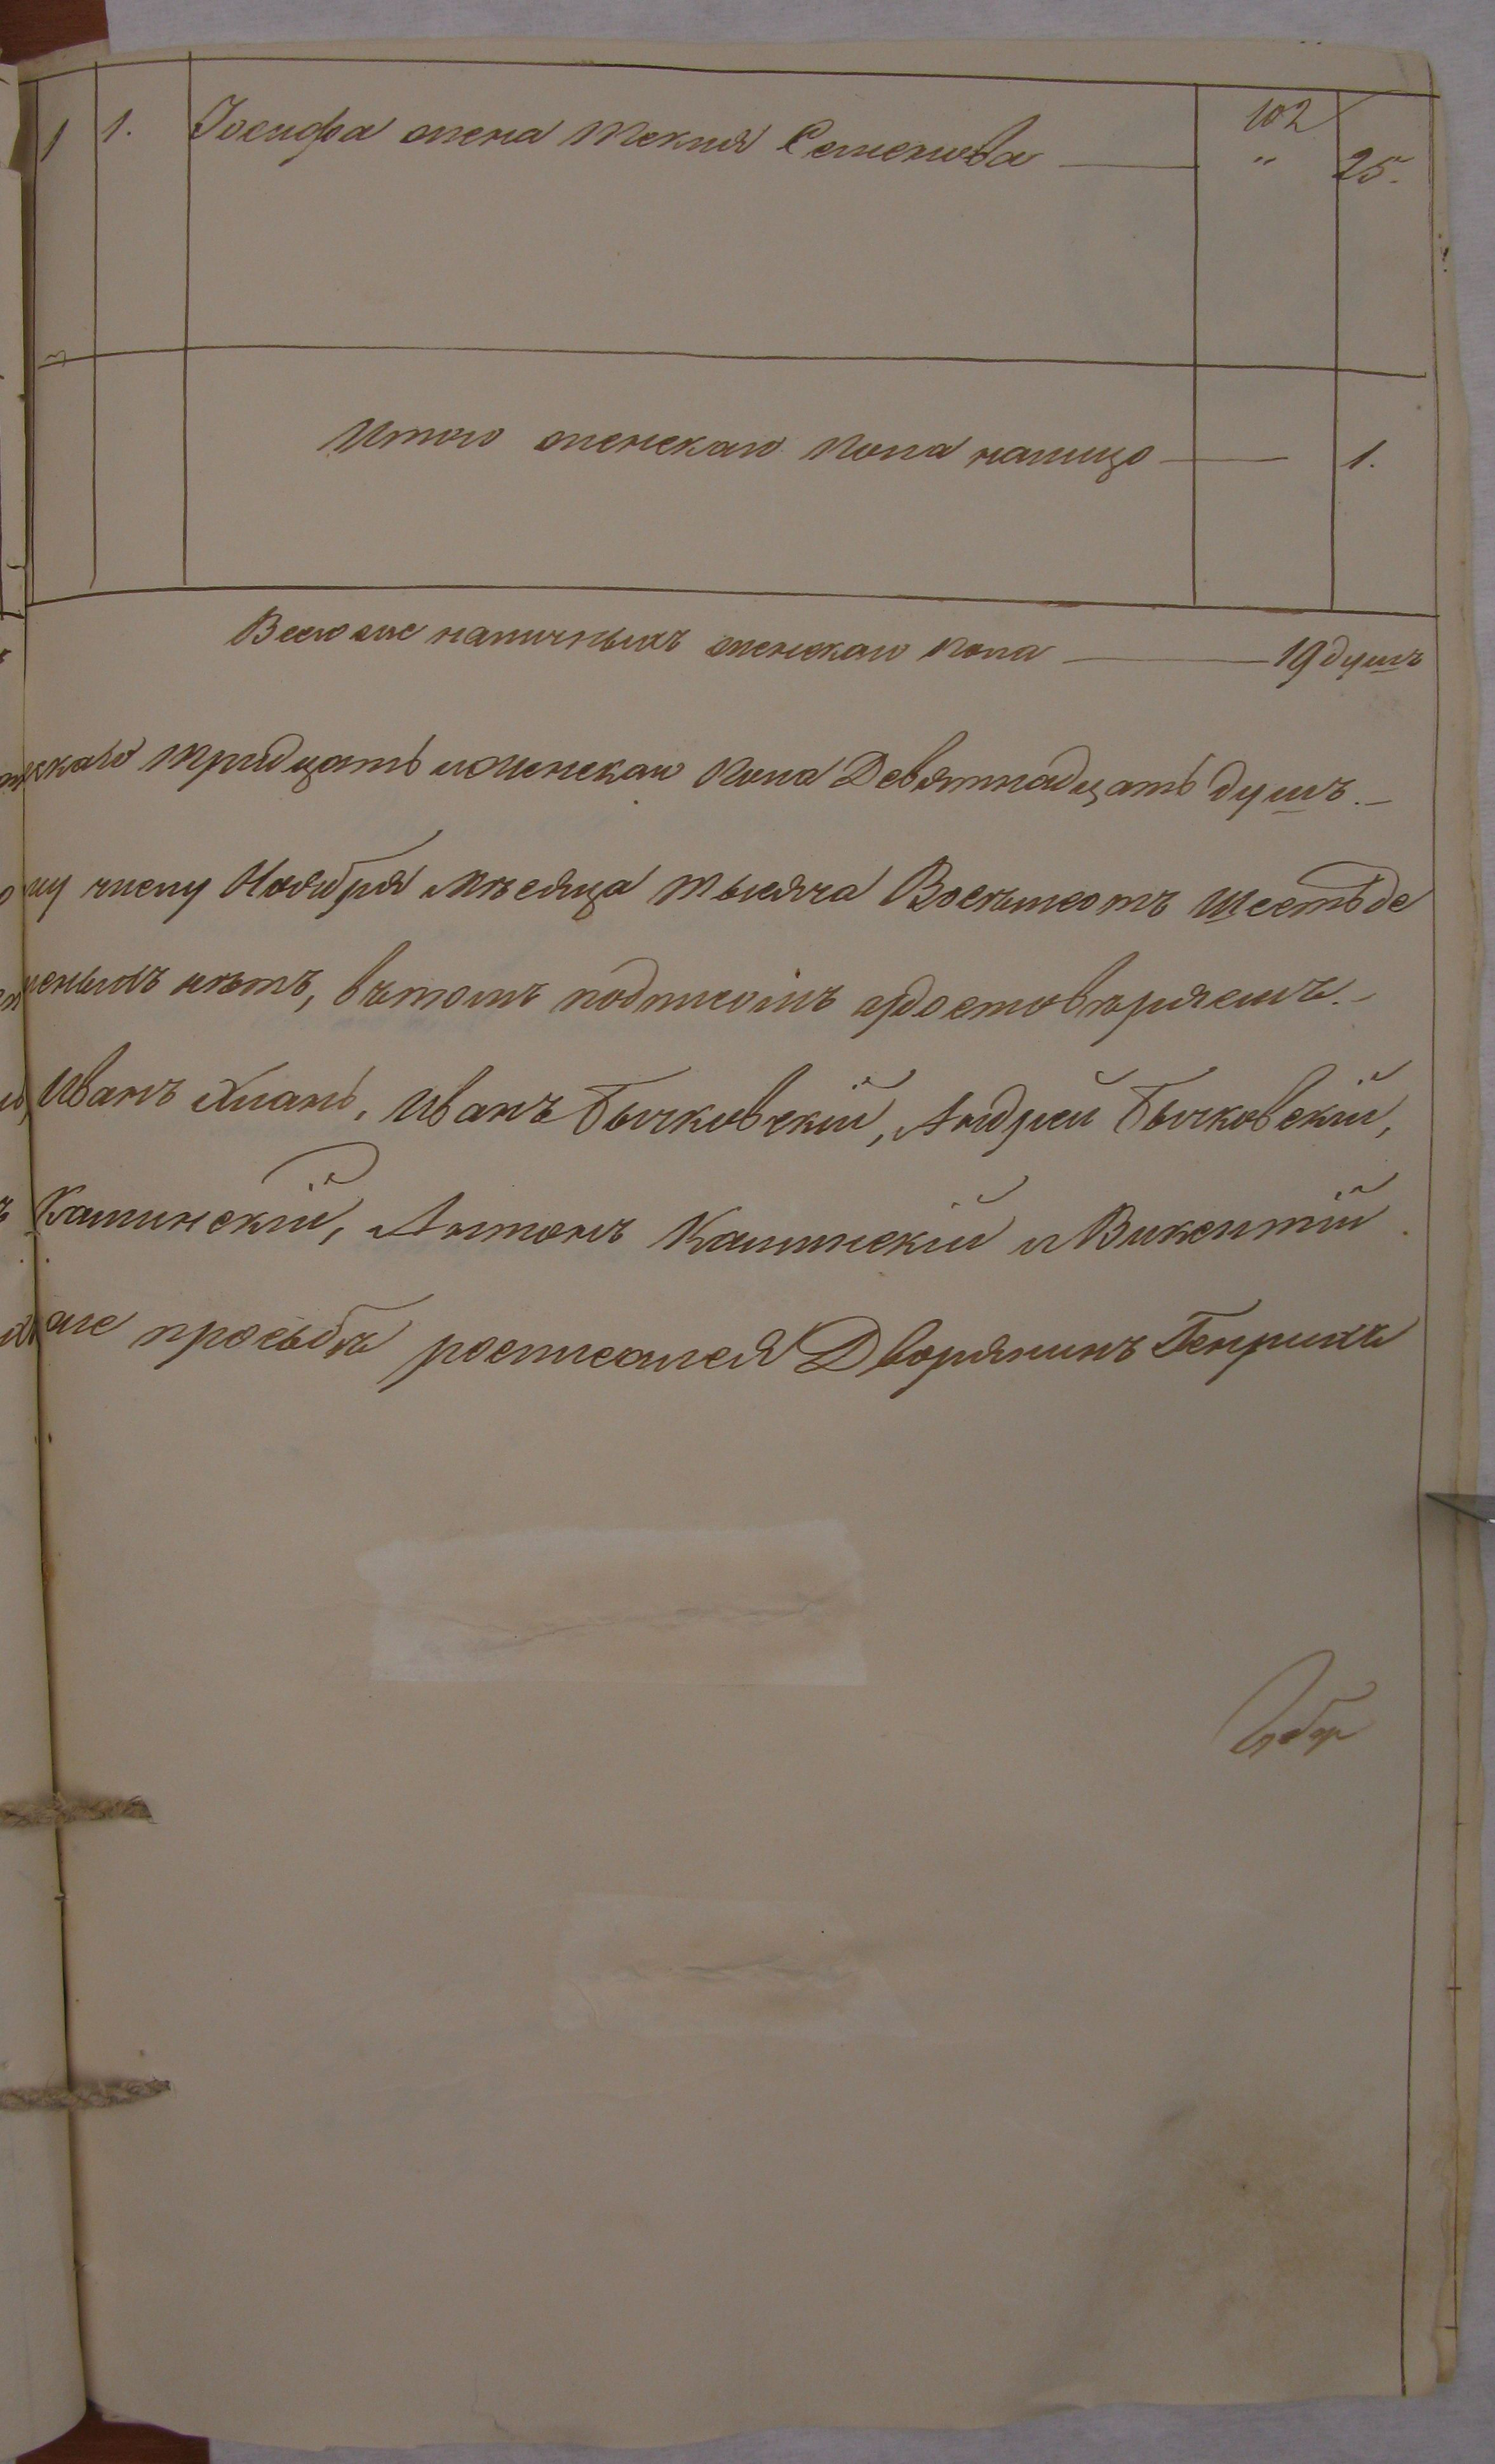 102
1 1. Іосифа жена Текля Семенова — " 25.
Итого женскаго пола налицо — 1.
Всего же наличныхъ женскаго пола — 19 душъ
жскаго тридцать и женскаго пола Девятнадцать душъ.—
му числу Ноября мѣсяца тысяча Восемьсотъ шестьде
ченныхъ нѣтъ, въ томъ подписомъ удостовѣряемъ.—
Иванъ Хлань, Иванъ Бычковскій, Андрей Бычковскій,
Калинскій, Антонъ Калинскій и Викентій
же просьбѣ росписался Дворянинъ Генрихъ